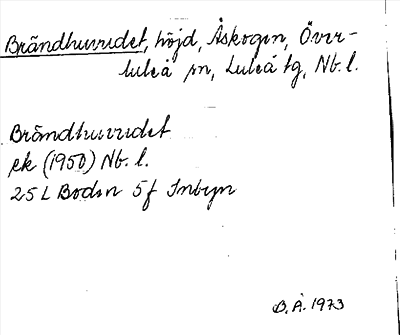 Brändhuvudet, höjd, Åskogen, Över-
luleå sn, Luleå tg, Nb. l.
Brändhuvudet
ek (1950) Nb. l.
25 L Boden 5f Inbyn
B. Å. 1973